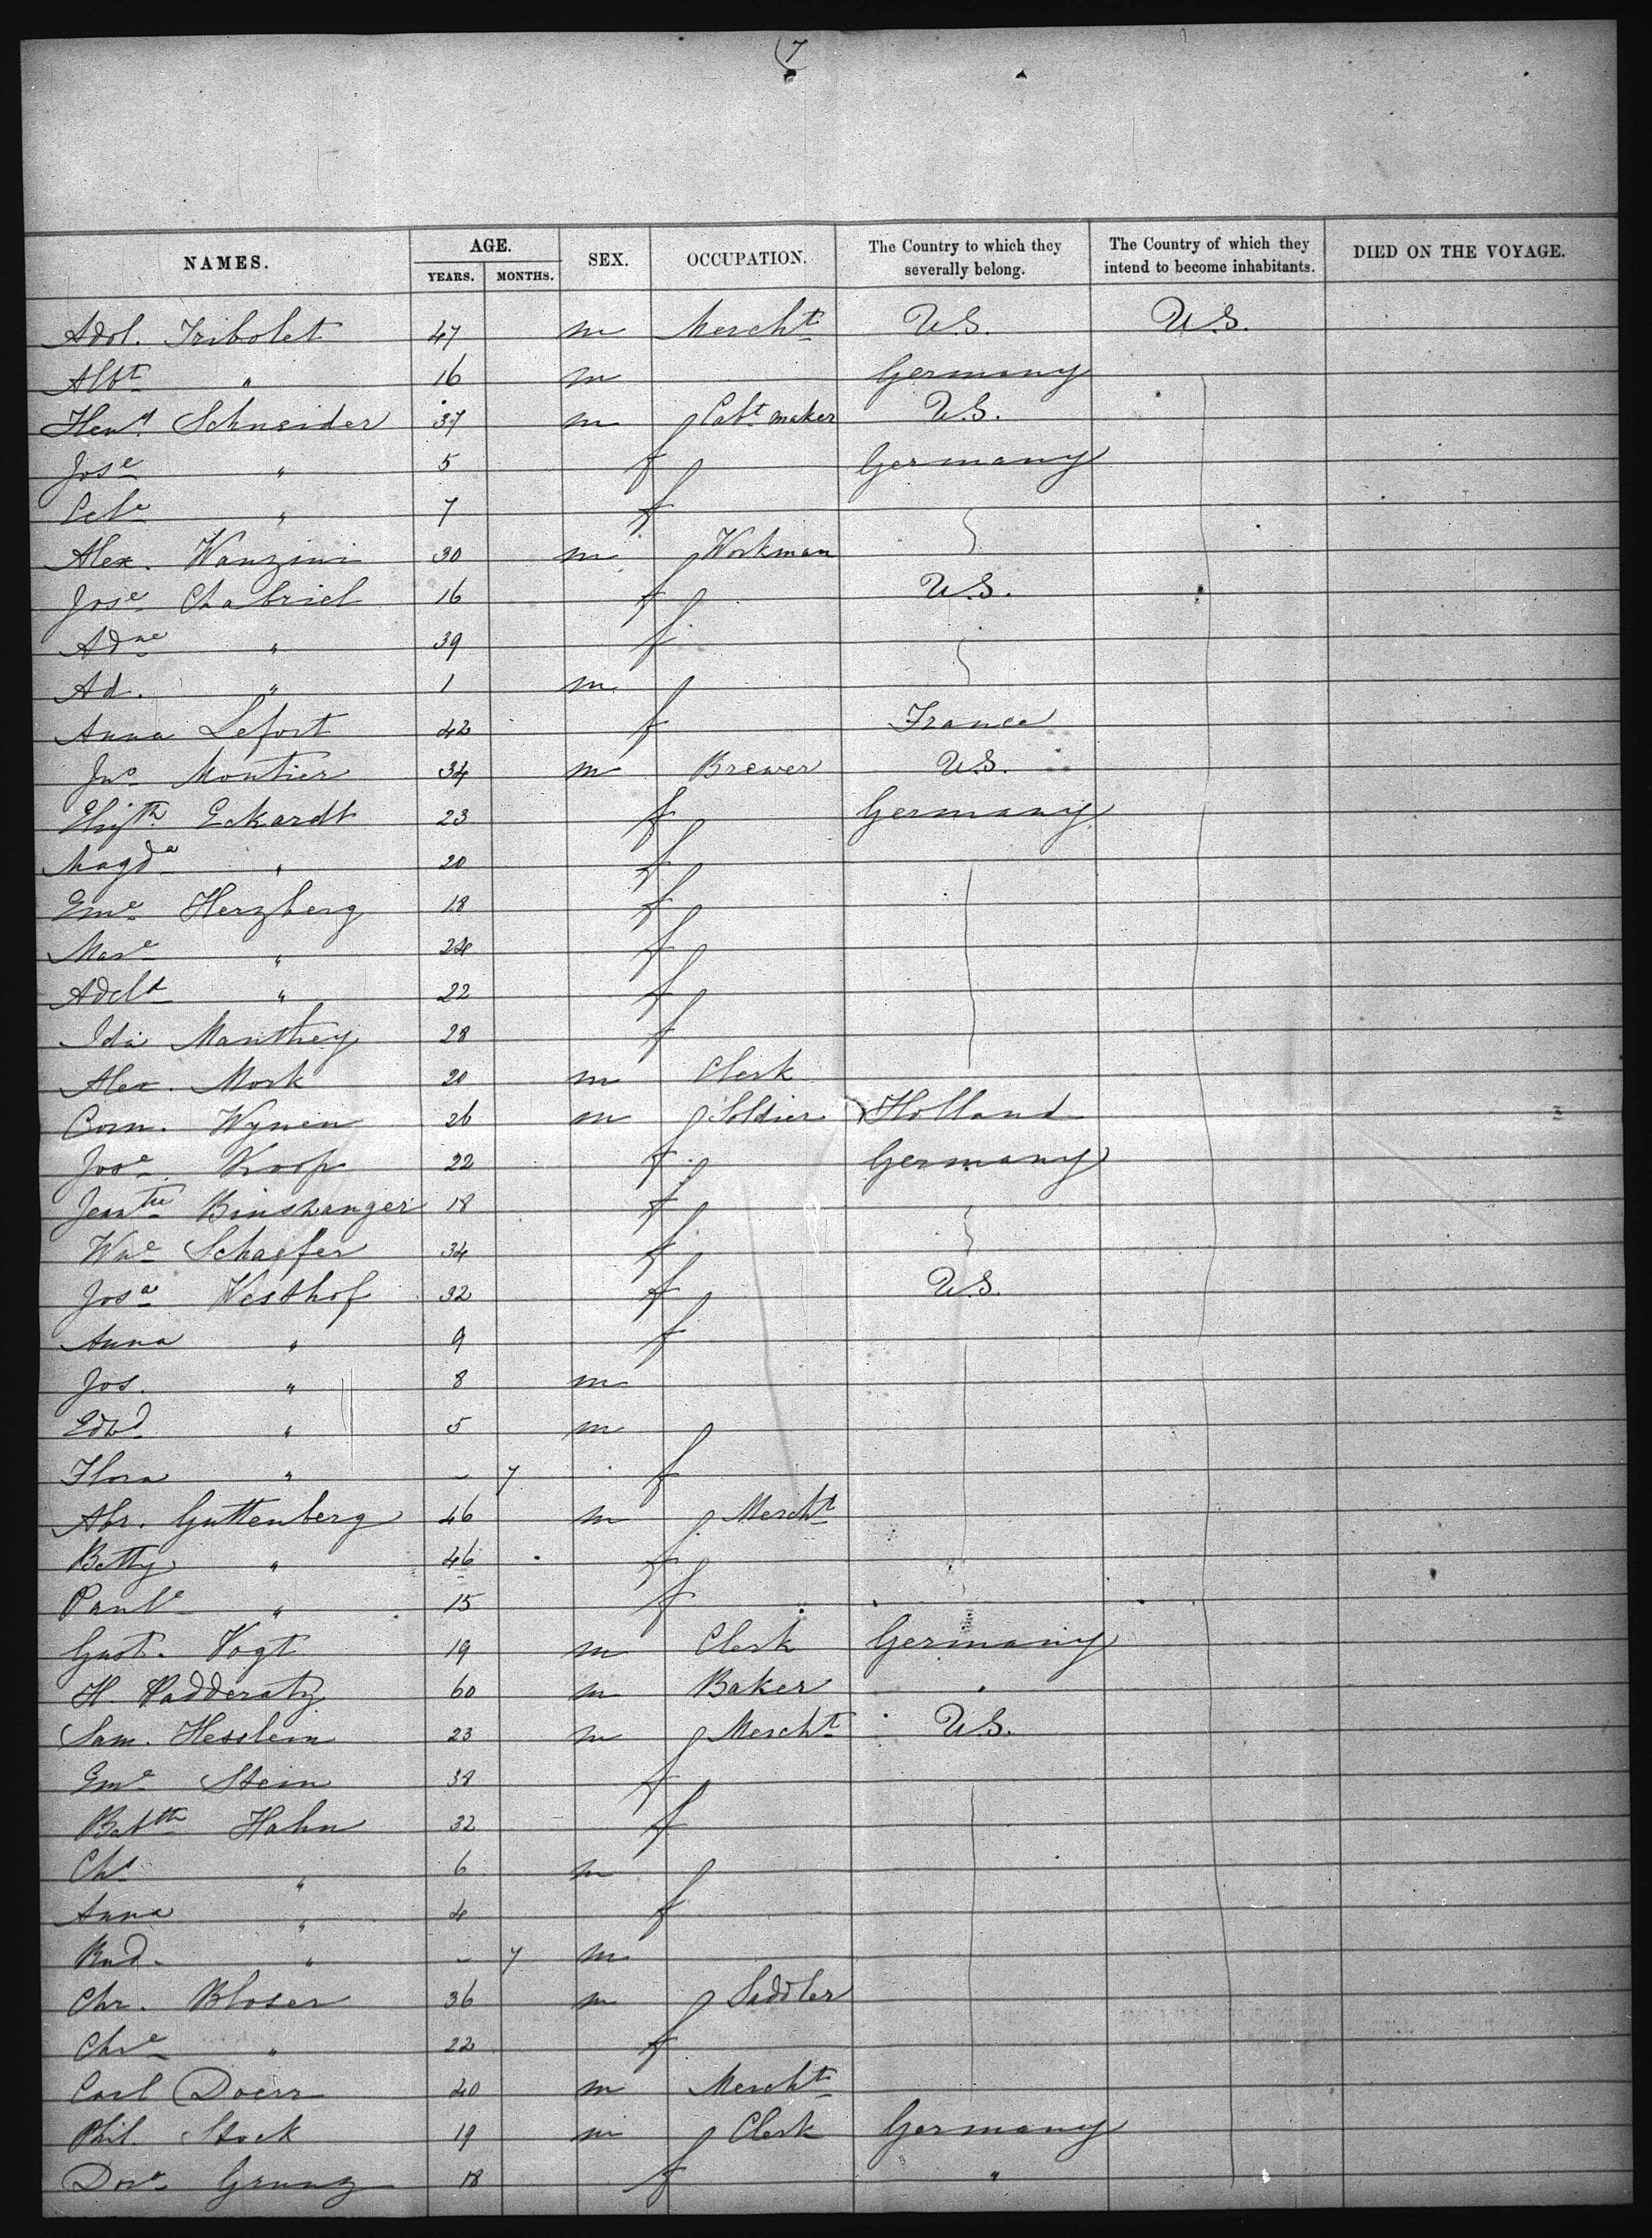 7
NAMES. AGE. YEARS. MONTHS. SEX. OCCUPATION. The Country to which they severally belong. The Country of which they intend to become inhabitants. DIED ON THE VOYAGE.
Adol. Tribolet 47 m Mercht U.S. U.S.
Albt " 16 m Germany
Heny Schneider 37 m Cabt maker U.S.
Jose " 5 f Germany
" 7 f
Alex. Wanzini 30 m Workman
Jose Chabriel 16 f U.S.
Adne " 39 f
Ad. " 1 m
Anna Lefort 42 f France
Jno Montier 34 m Brewer U.S.
Elizth Eckardt 23 f Germany
Magda " 20 f
Eme Herzberg 18 f
Mare " 24 f
Adelt " 22 f
Ida Manthey 28 f
Alex. Mork 20 m Clerk
Corn. Wynen 26 m Soldier Holland
Jose Koop 22 f Germany
Jeantte Binswanger 18 f
Wme Schaefer 34 f
Josa Westhof 32 f U.S.
Anna " 9 f
Jos. " 8 m
Edwd " 5 m
Flora " - 7 f
Abr. Guttenberg 46 m Mercht
Betty " 46 f
Paule " 15 f
Gust. Vogt 19 m Clerk Germany
H. Padderatz 60 m Baker "
Sam. Hesslein 23 m Mercht U.S.
Eme Stein 38 f
Babtte Hahn 32 f
Chs " 6 m
Anna " 4 f
Rud. " - 7 m
Chr. Bloser 36 m Saddler
Chre " 22 f
Carl Doerr 40 m Mercht
Phil. Stock 19 m Clerk Germany
Dora Grunz 18 f "